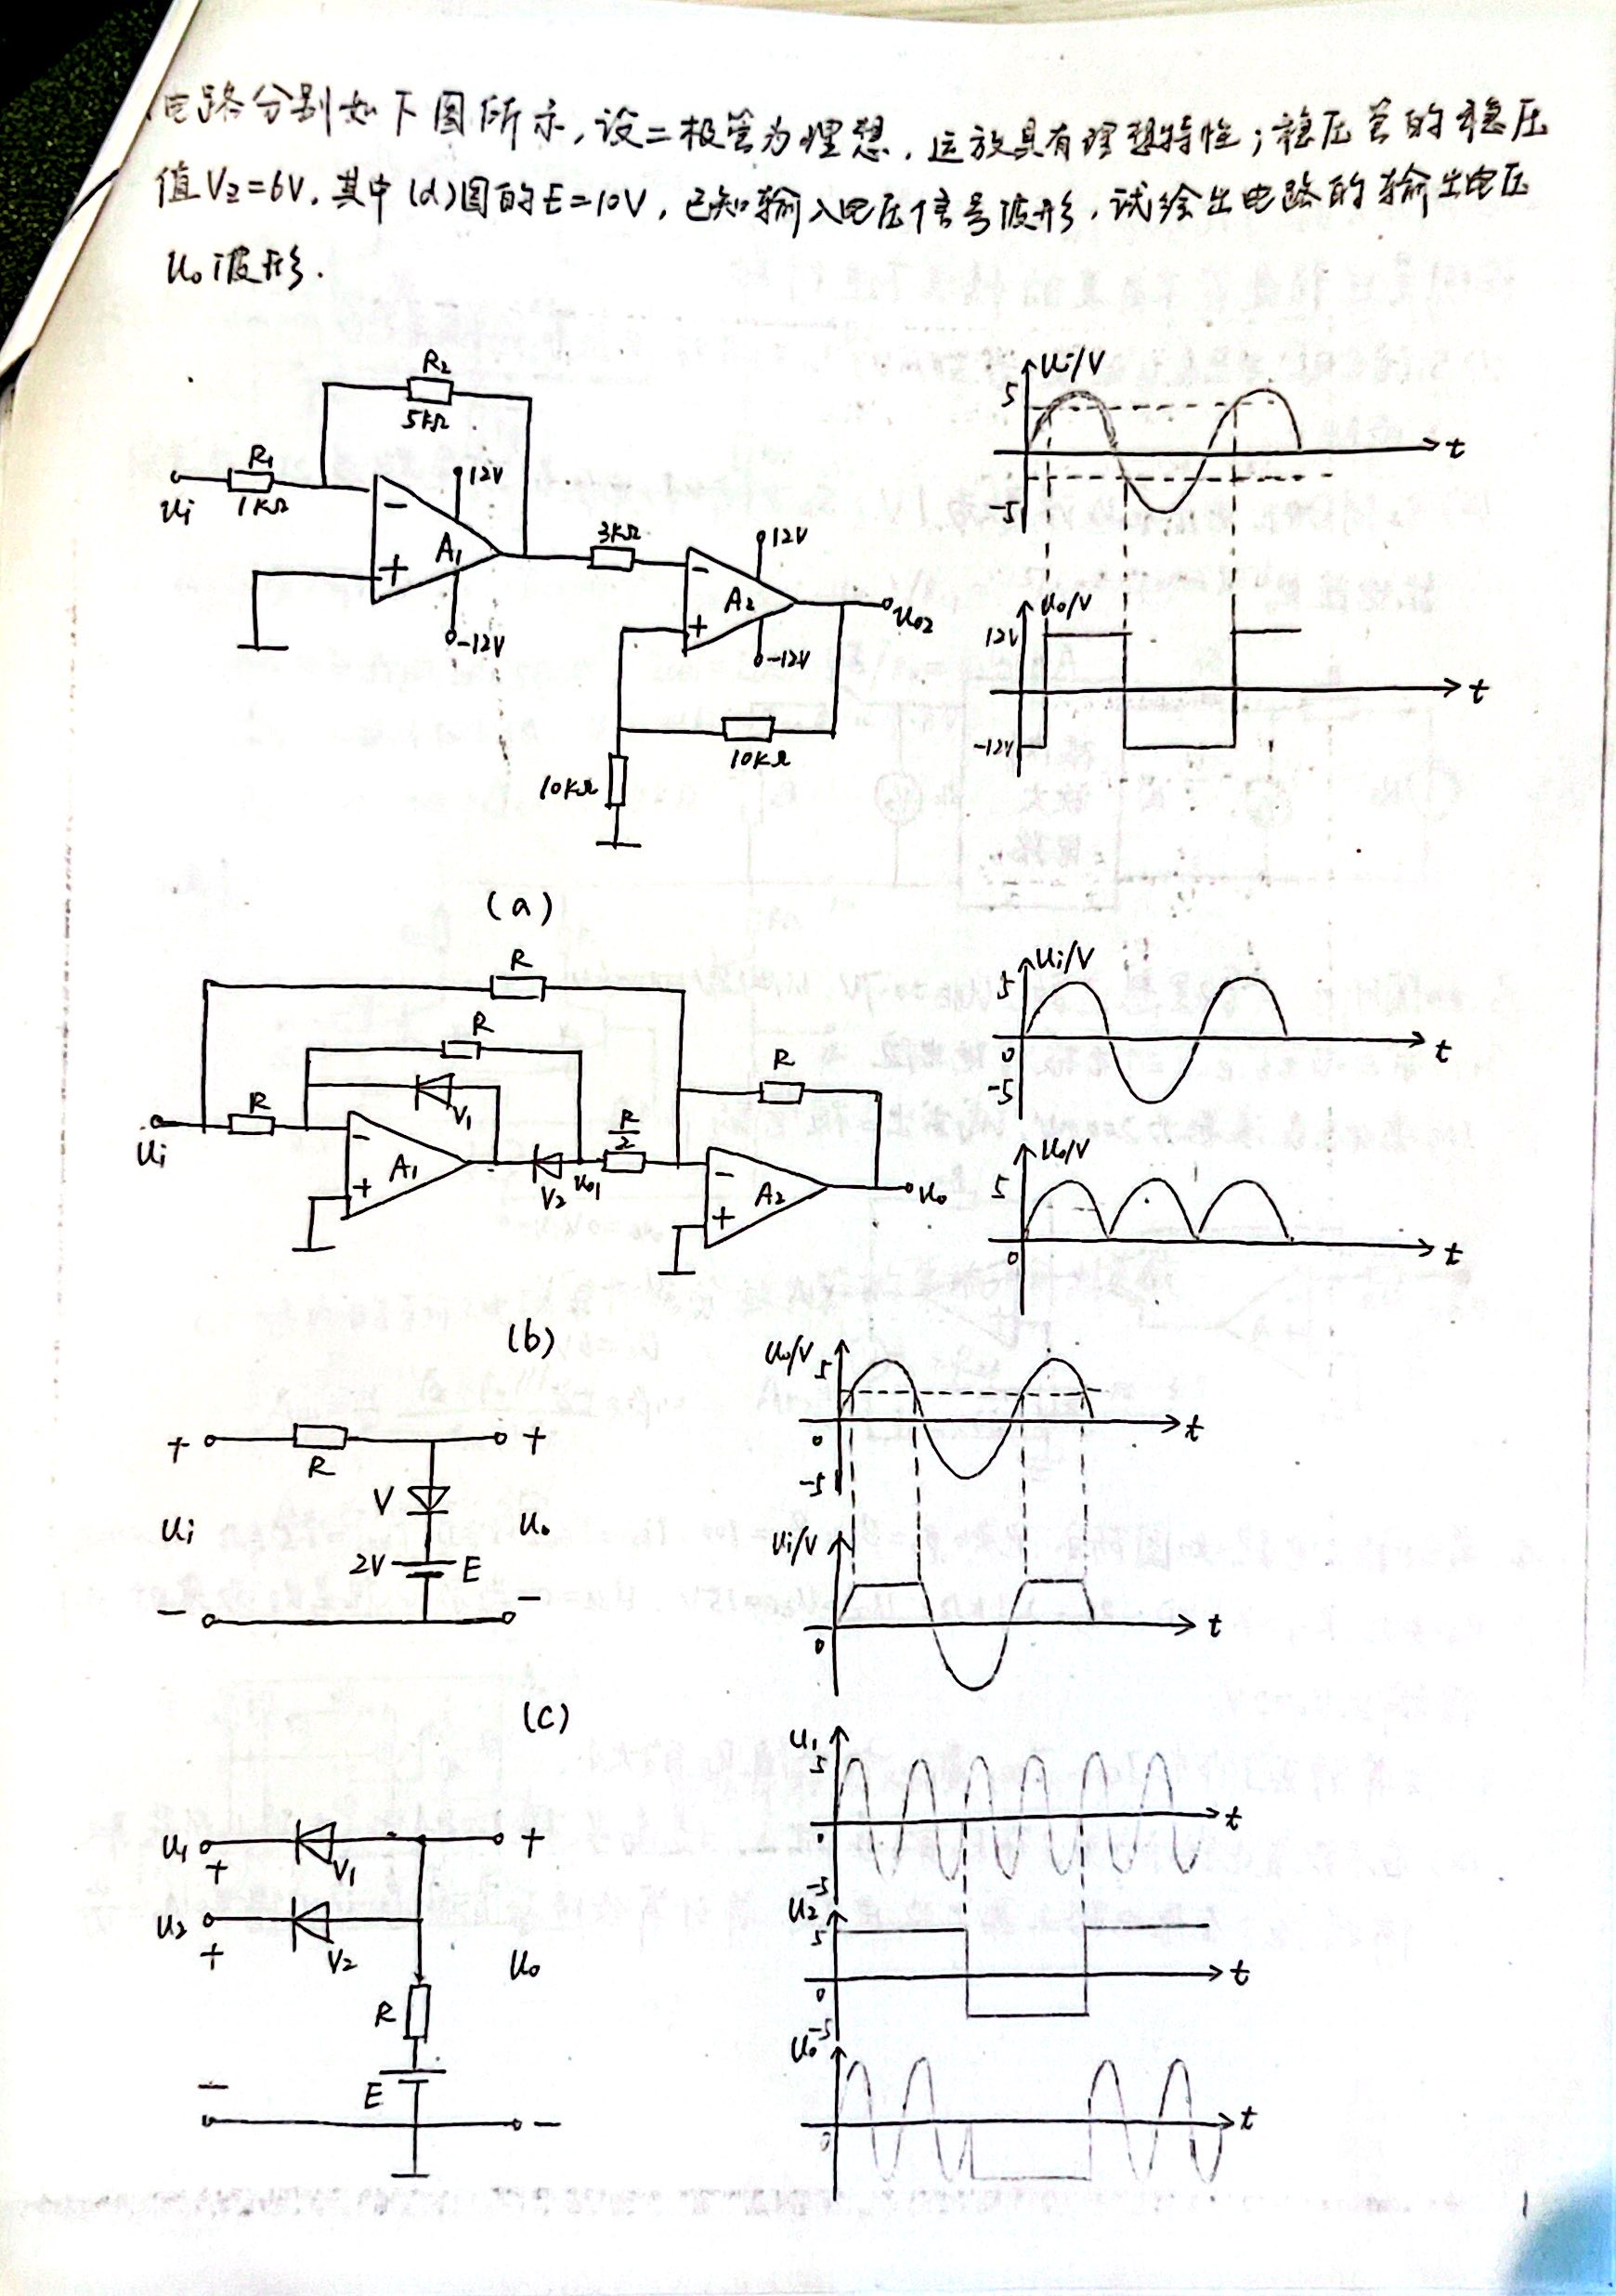 电路分别如下图所示,设二极管为理想,运放具有理想特性;稳压管的稳压
值Vz=6V,其中(d)图的E=10V,已知输入电压信号波形,试绘出电路的输出电压
uo波形.
R2
5kΩ
R1
1kΩ
ui
12V
-
A1
+
-12V
3kΩ
12V
-
A2
+
-12V
uo2
10kΩ
10kΩ
ui/V
5
t
-5
uo/V
12V
t
-12V
(a)
R
R
R
V1
R
ui
-
A1
+
V2
uo1
R/2
-
A2
+
uo
ui/V
5
0
t
-5
uo/V
5
0
t
(b)
+
R
+
V
ui
uo
2V
E
-
-
uo/V
5
0
t
-5
ui/V
0
t
(c)
u1
+
V1
+
u2
+
V2
uo
R
E
-
-
u1
5
0
t
-5
u2
5
0
t
-5
uo
0
t
1